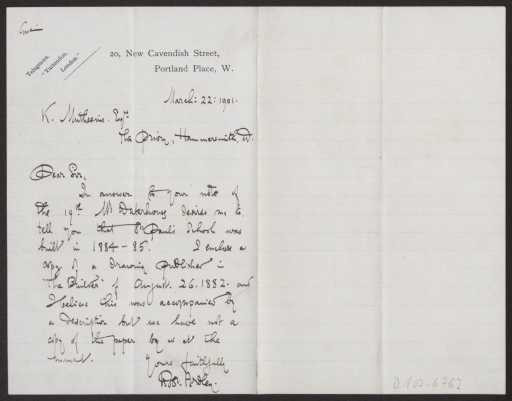 Telegrams.
London."
20, New Cavendish Street,
Portland Place, W.
March: 22: 1901.
K. Muthesius. Esqre.
The Priory, Hammersmith, W.
Dear Sir,
In answer to your note of
the 19th Mr Waterhouse desires me to
tell you that St Paul's School was
built in 1884-85. I enclose a
copy of a drawing published in
"The Builder" of August. 26. 1882. and
I believe this was accompanied by
a description but we have not a
copy of the paper by us at the
moment. Yours faithfully